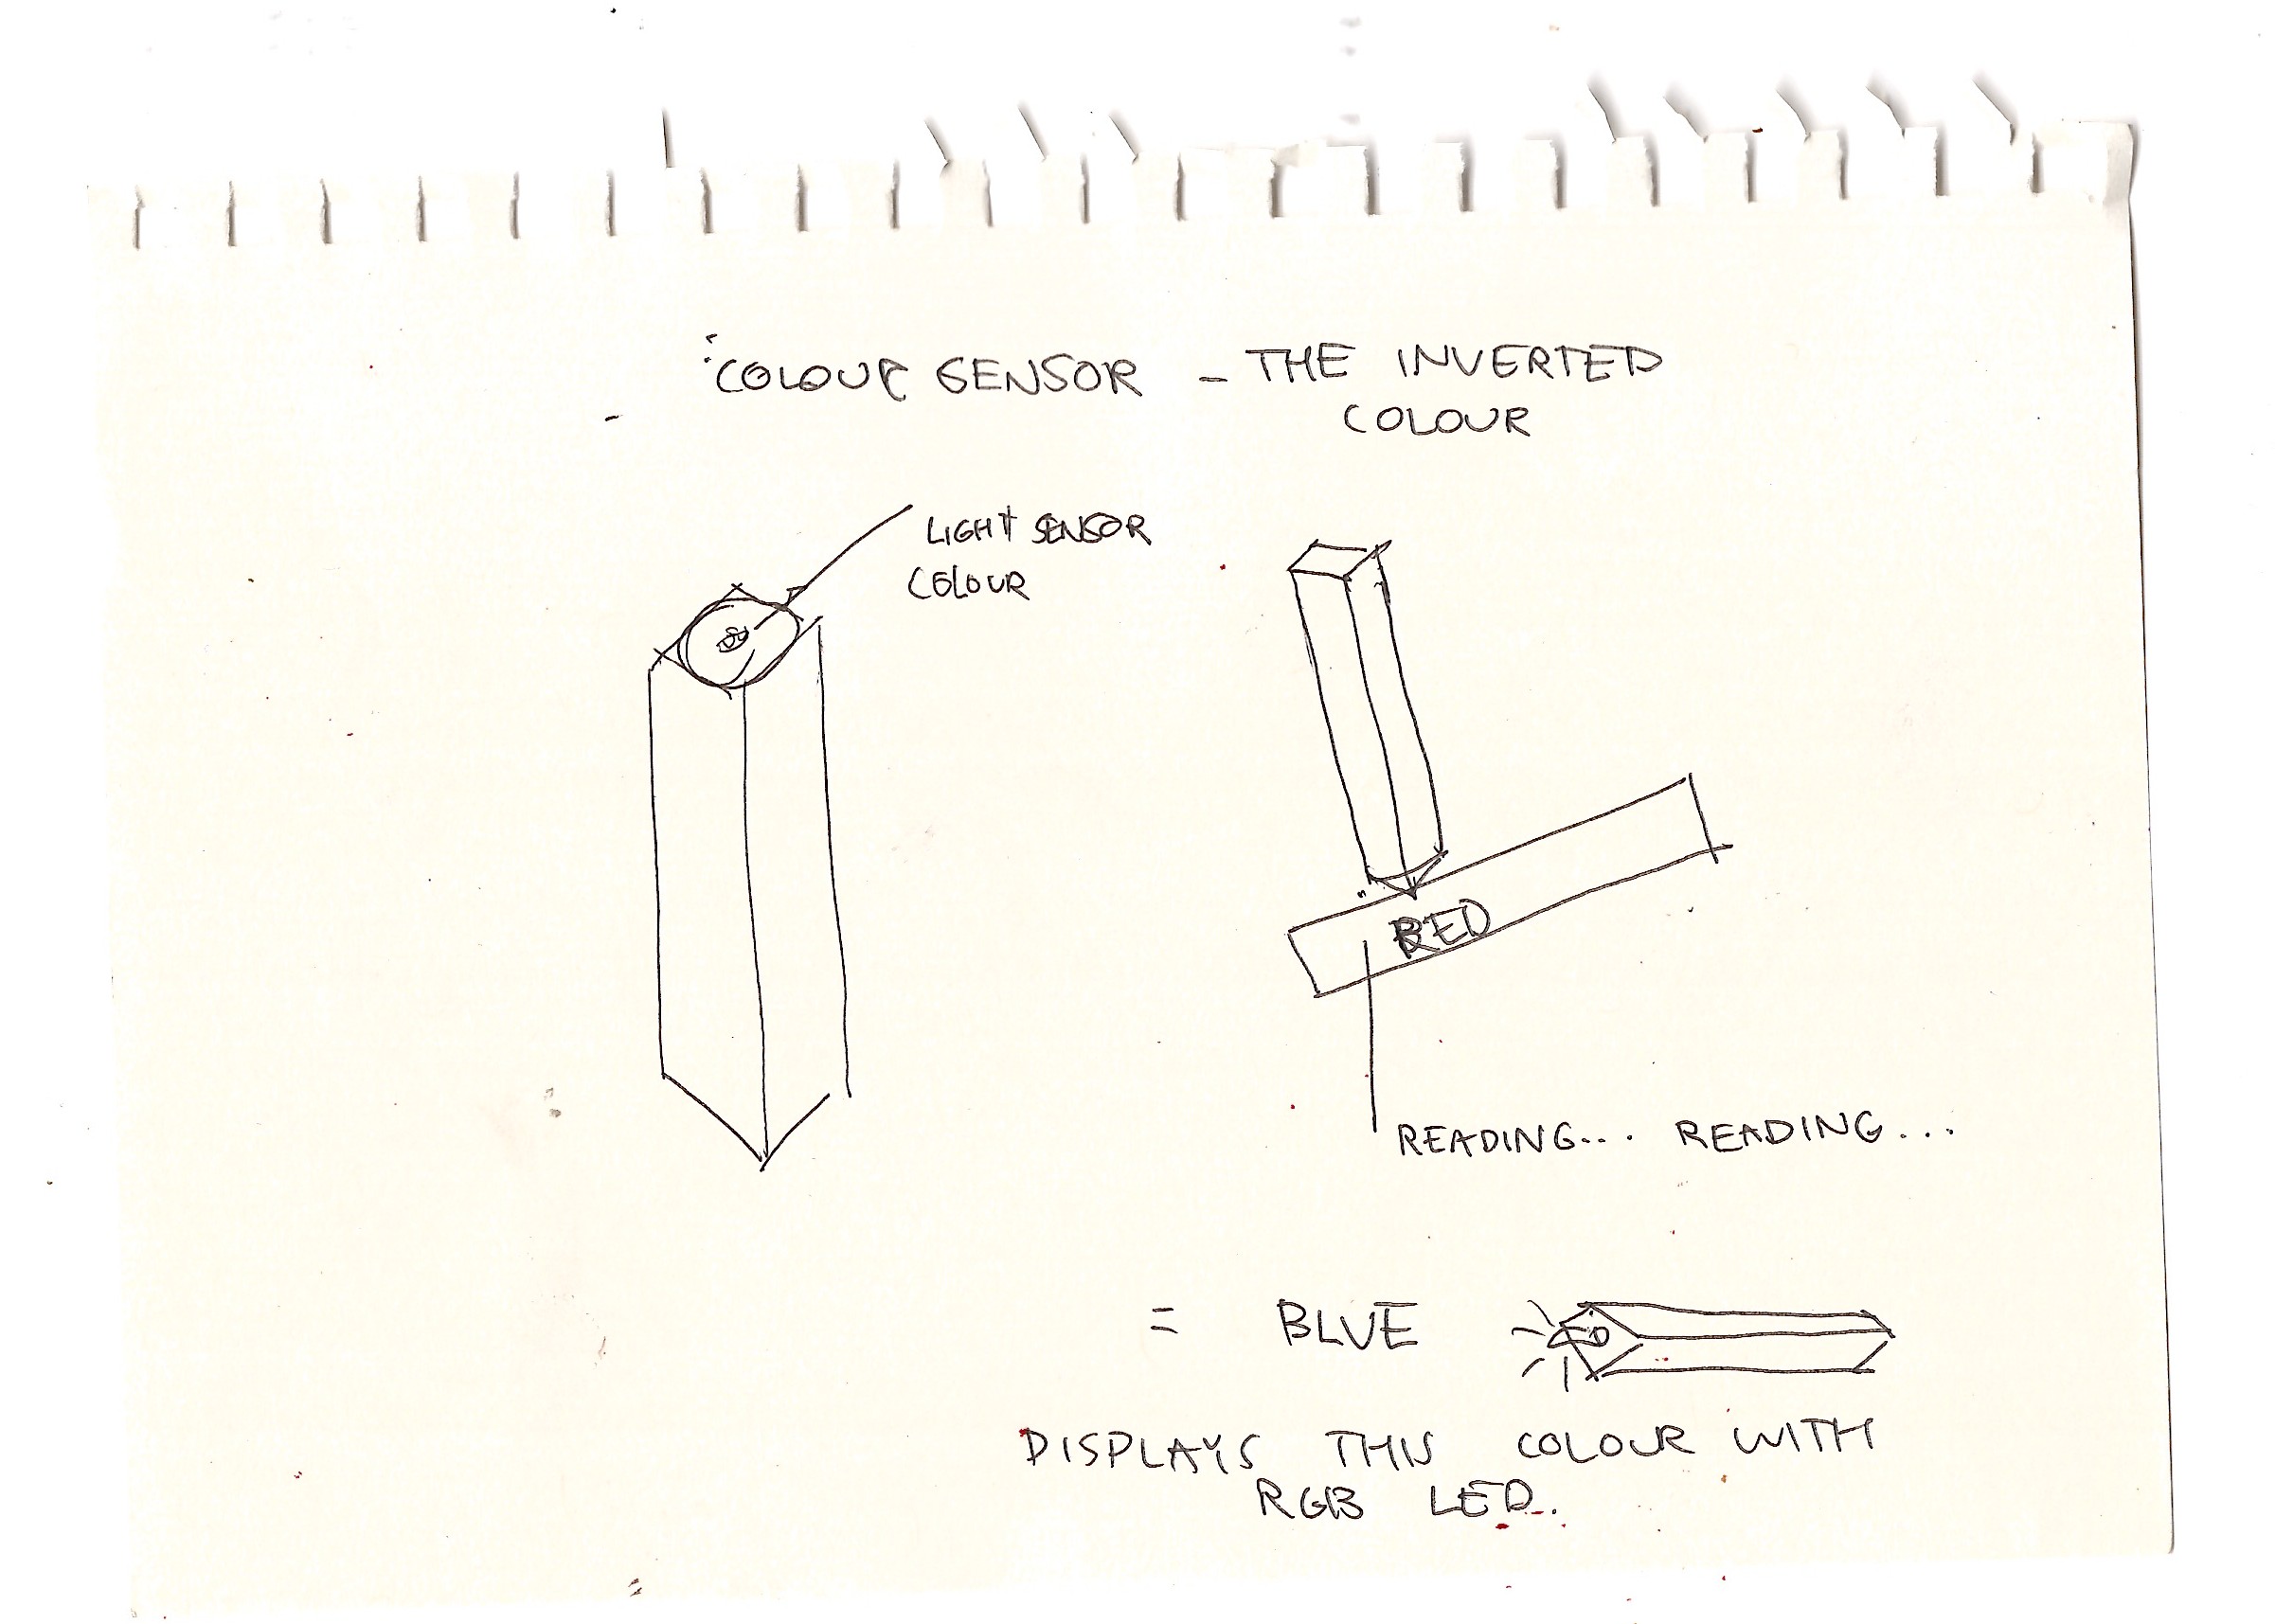 COLOUR SENSOR - THE INVERTED
COLOUR
LIGHT SENSOR
COLOUR
RED
READING... READING...
= BLUE
DISPLAYS THIS COLOUR WITH
RGB LED.